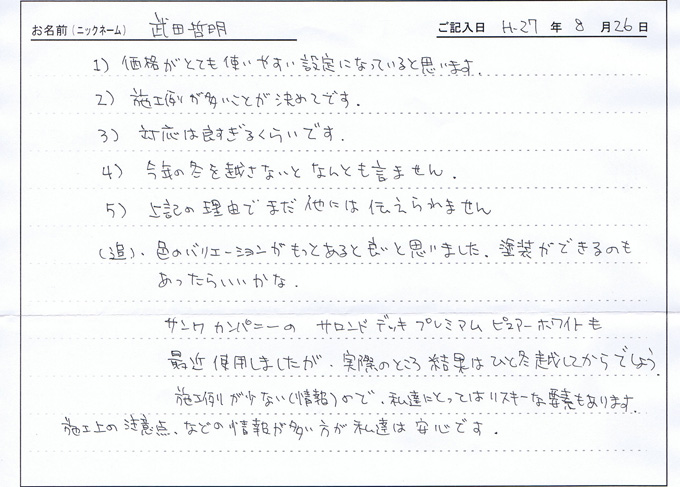 お名前（ニックネーム） 武田哲明 ご記入日 H-27 年 8 月 26 日
1) 価格がとても使いやすい設定になっていると思います.
2) 施工例が多いことが決めてです.
3) 対応は良すぎるくらいです.
4) 今年の冬を越さないとなんとも言ません.
5) 上記の理由でまだ他には伝えられません
(追). 色のバリエーションがもっとあると良いと思いました. 塗装ができるのも
あったらいいかな.
サンワカンパニーの サロンドデッキ プレミアム ピュアーホワイトも
最近使用しましたが. 実際のところ結果はひと冬越してからでしょう.
施工例が少ない(情報)ので. 私達にとってはリスキーな要素もあります.
施工上の注意点、などの情報が多い方が私達は安心です.